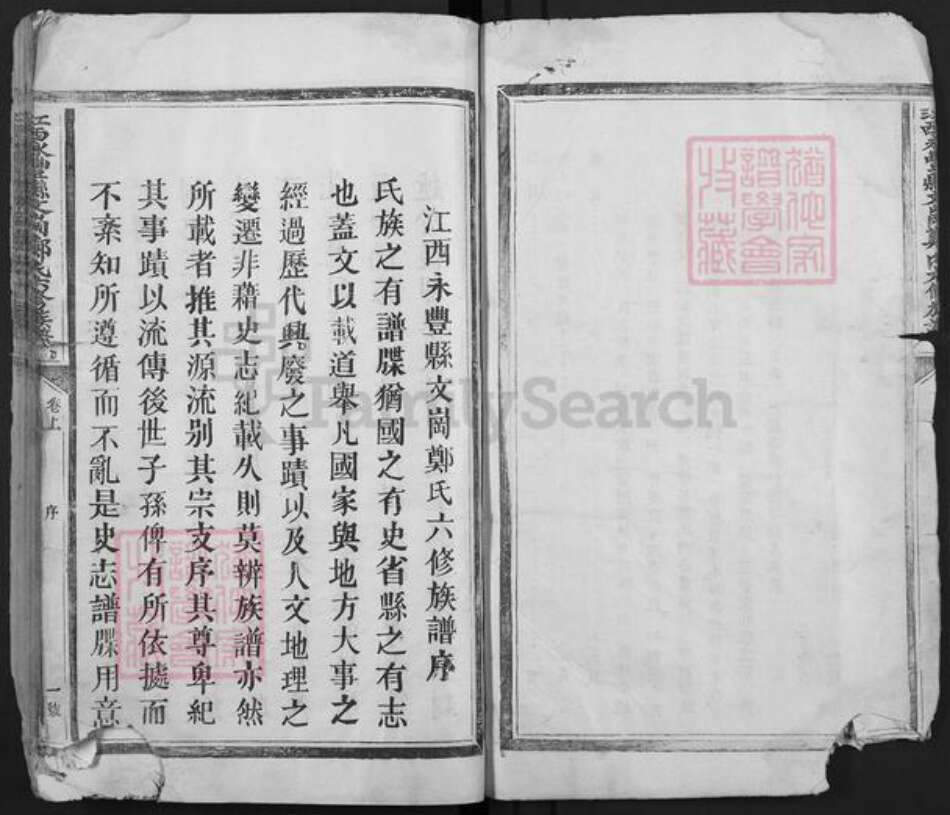 江西永豐縣文崗鄭氏六修族譜序
氏族之有譜牒猶國之有史省縣之有志
也蓋文以載道舉凡國家與地方大事之
經過歷代興廢之事蹟以及人文地理之
變遷非藉史志紀載久則莫辨族譜亦然
所載者推其源流別其宗支序其尊卑紀
其事蹟以流傳後世子孫俾有所依據而
不紊知所遵循而不亂是史志譜牒用意
江西永豐縣文崗鄭氏六修族譜
卷上
序
一號
譜學會
收藏
FamilySearch